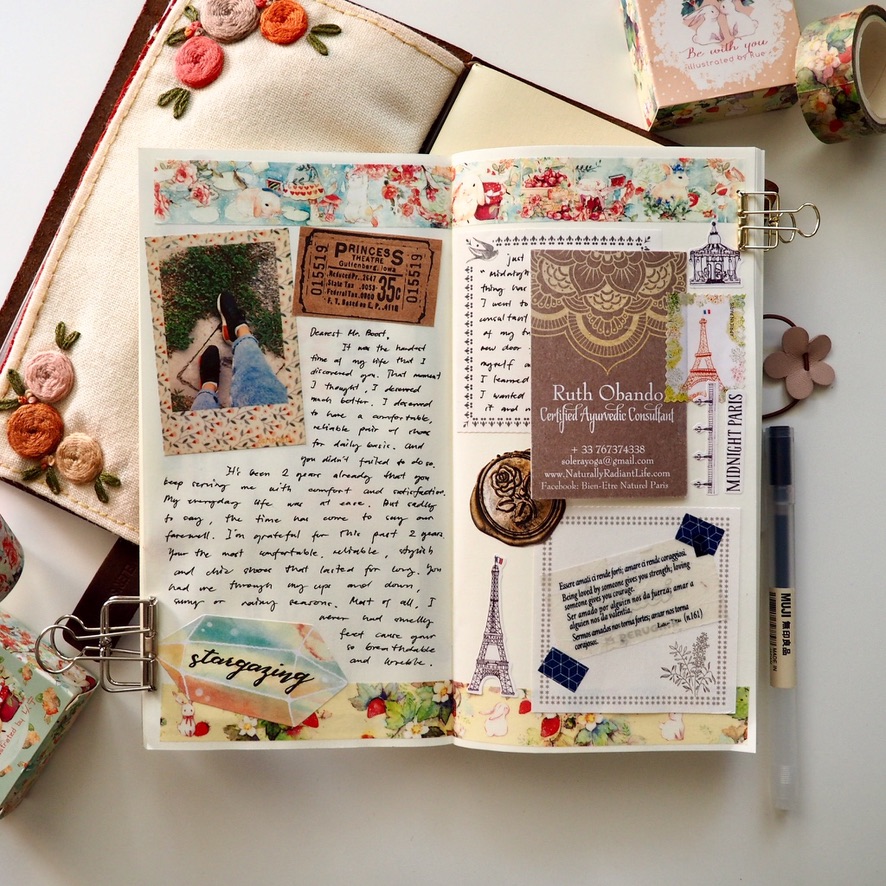 Be with you
illustrated by Rue
015519
PRINCESS
THEATRE
Guttenberg, Iowa
35¢
015519
Dearest Mr. Boost,
It was the hardest
time of my life that I
discovered you. That moment
I thought, I deserved
much better. I deserved
to have a comfortable,
reliable pair of shoes
for daily basis. And
you didn't failed to do so.
It's been 2 years already that you
keep serving me with comfort and satisfaction.
My everyday life was at ease. But sadly
to say, the time has come to say our
farewell. I'm grateful for this past 2 years.
You're the most comfortable, reliable, stylish
and chic shoes that lasted for long. You
had me through my ups and down,
sunny or rainy seasons. Most of all, I
never had smelly
feet cause your
so breathable
and
stargazing
just
"midnight
thing was
I went to
consultant
of my
now door
myself
I learned
I wanted
it and
Ruth Obando
Certified Ayurvedic Consultant
+ 33 767374338
solerayoga@gmail.com
www.NaturallyRadiantLife.com
Facebook: Bien-Etre Naturel Paris
MIDNIGHT PARIS
Essere amati ci rende forti; amare ci rende coraggiosi.
Being loved by someone gives you strength; loving
someone gives you courage.
Ser amado por alguien nos da fuerza; amar a
alguien nos da valentía.
Sermos amados nos torna fortes; amar nos torna
corajosos.
Lao Tzu (n161)
MUJI 無印良品